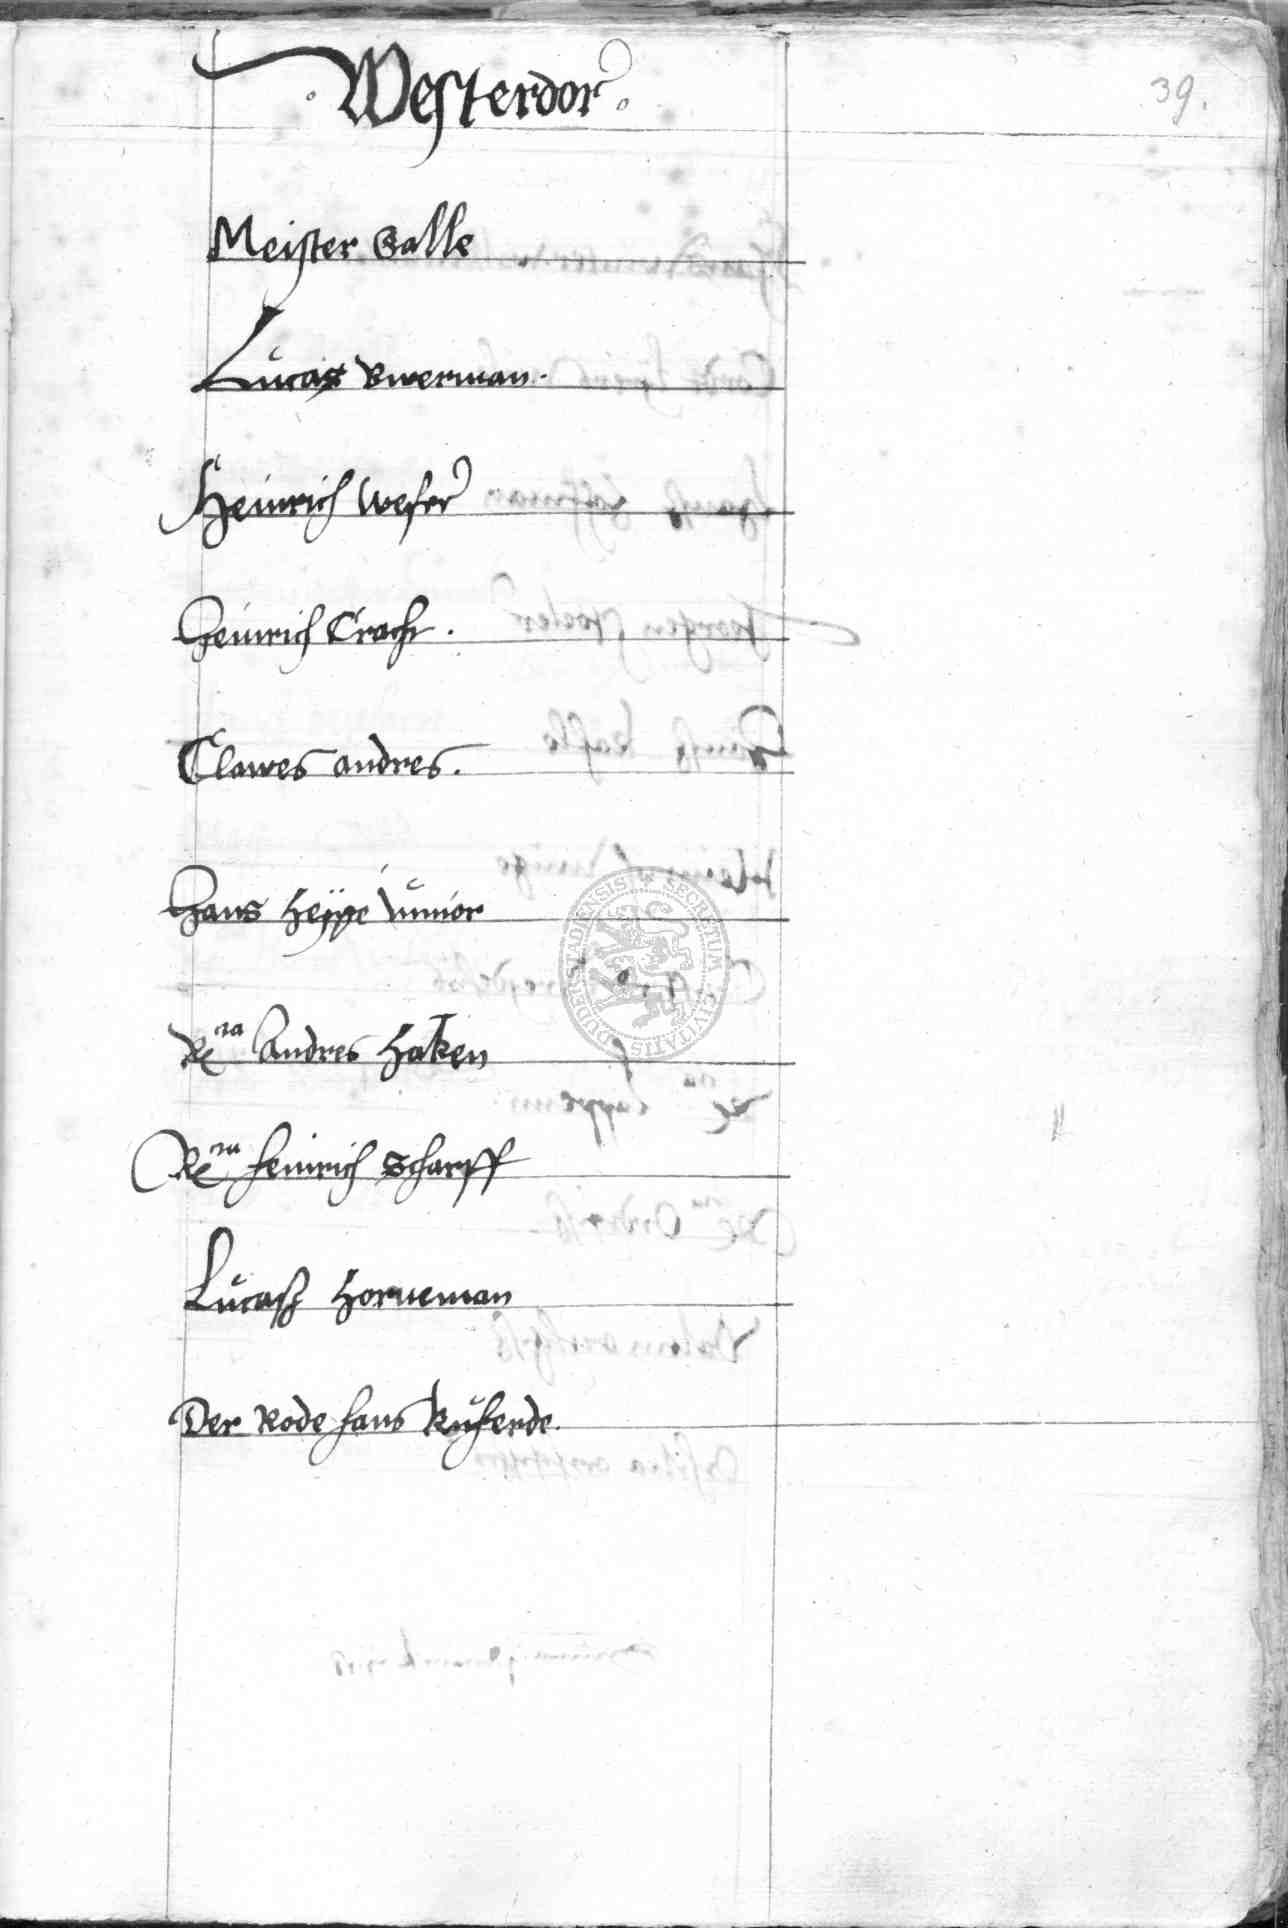 39.
Westerdor
Meister Galle
Lucas Bwerman.
Heinrich Weser
Heinrich Cracht.
Clawes andres.
Hans Heyse Junior
Rᵗᵃ Andres Haken
Rᵗᵃ Heinrich Scharff
Lucasz Horneman
Der Rode Hans Kuherde.
SECRETUM CIVITATIS DUDERSTADIENSIS